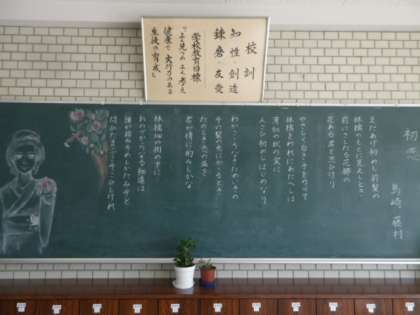 校訓
知性・創造
錬磨・友愛
学校教育目標
よく見 よく考え
健康で 実行力のある
生徒の育成
初恋
島崎 藤村
まだあげ初めし前髪の
林檎のもとに見えしとき
前にさしたる花櫛の
花ある君と思ひけり
やさしく白き手をのべて
林檎をわれにあたへしは
薄紅の秋の実に
人こひ初めしはじめなり
わがこゝろなきためいきの
その髪の毛にかゝるとき
たのしき恋の盃を
君が情に酌みしかな
林檎畑の樹の下に
おのづからなる細道は
誰が踏みそめしかたみぞと
問ひたまふこそこひしけれ